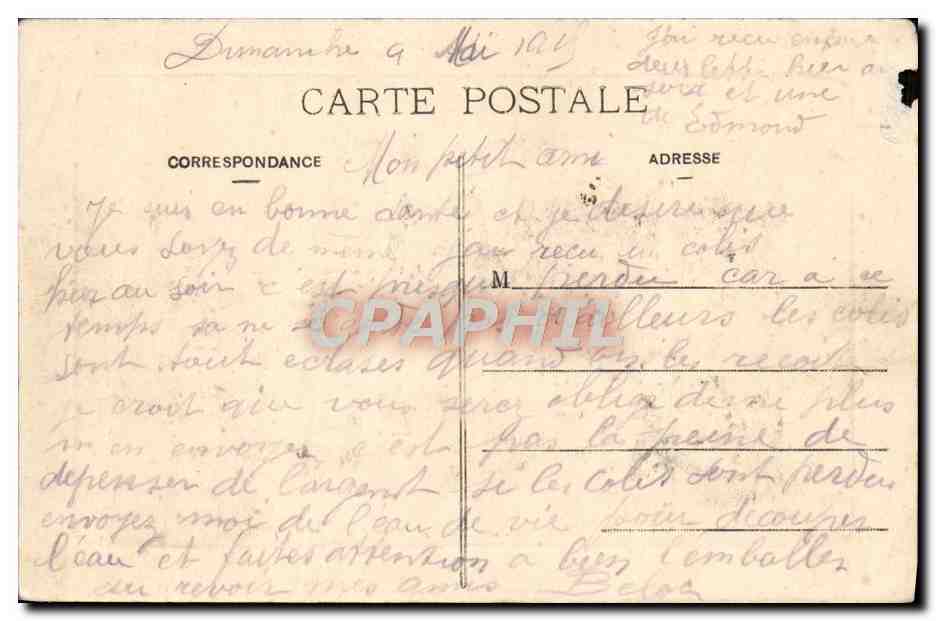 Dimanche 9 Mai 1915
J'ai recu encore
deux hier au
soir et une
de Edmond
CARTE POSTALE
CORRESPONDANCE
Mon petit ami
ADRESSE
Je suis en bonne santé et je desire que
vous soyez de même j'ai recu un colis
hier au soir c'est presque perdu car a ce
M
temps sa ne se d'ailleurs les colis
CPAPHIL
sont tout eclases quand on les recoit
je croit que vous serez obligé de ne plus
m'en envoyer c'est pas la peine de
depensser de l'argent si les colis sont perdu
envoyez moi de l'eau de vie pour découper
l'eau et faites attention a bien l'emballer
au revoir mes amis